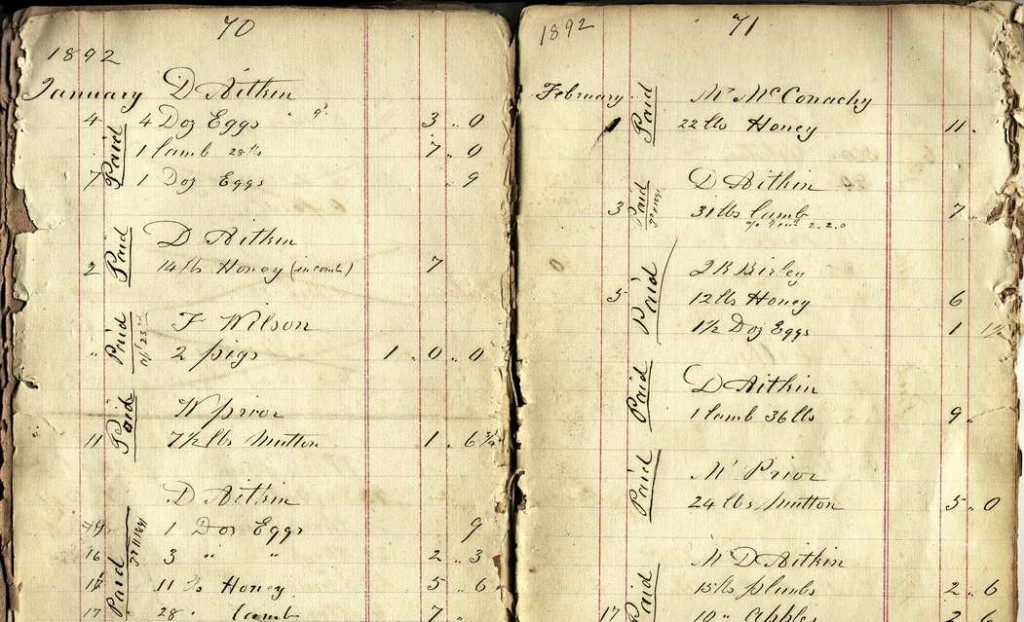 70
1892
January D Aitkin
4 4 Doz Eggs 9d 3 .. 0
Paid
1 lamb 28 lbs 7 .. 0
7 1 Doz Eggs .. 9
D Aitkin
Paid
2 14 lb Honey (in comb) 7
F Wilson
Paid
" 2 pigs 1 .. 0 .. 0
W prior
Paid
11 7½ lbs Mutton 1 .. 6¾
D Aitkin
1 Doz Eggs 9
16 3 " " 2 .. 3
Paid
11 lbs Honey 5 .. 6
17 28 " lamb 7 ..
71
1892
February Mr McConachy
Paid
1 22 lbs Honey 11 ..
D Aitkin
Paid
3 31 lbs lamb 7 ..
2.2.0
J R Birley
Paid
5 12 lbs Honey 6
1½ Doz Eggs 1 1½
D Aitkin
Paid
1 lamb 36 lbs 9 ..
Mr Prior
Paid
24 lbs Mutton 5 .. 0
M D Aitkin
15 lbs plumbs 2 .. 6
Paid
17 10 " Apples 2 6